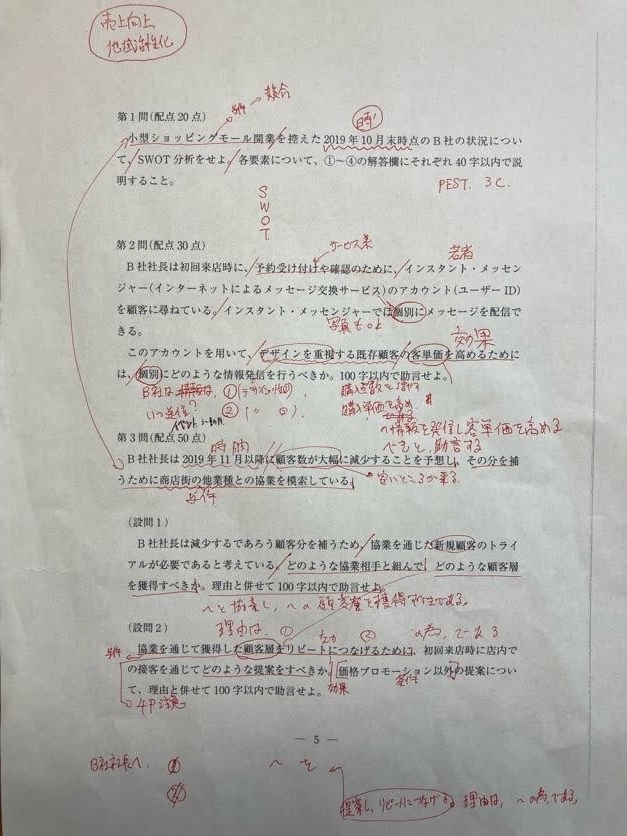 売上向上
地域活性化
競合
第1問(配点20点)
時
小型ショッピングモール開業を控えた2019年10月末時点のB社の状況につい
て、SWOT分析をせよ。各要素について、①~④の解答欄にそれぞれ40字以内で説
明すること。
PEST. 3C.
S
W
O
T
第2問(配点30点)
サービス業
若者
B社社長は初回来店時に、予約受け付けや確認のために、インスタント・メッセン
ジャー(インターネットによるメッセージ交換サービス)のアカウント(ユーザーID)
を顧客に尋ねている。インスタント・メッセンジャーでは個別にメッセージを配信で
写真も
きる。
効果
このアカウントを用いて、デザインを重視する既存顧客の客単価を高めるために
は、個別にどのような情報発信を行うべきか。100字以内で助言せよ。
B社は ①
いつ送信? ②
イベント
購入単価を高め
~情報を発信し客単価を高める
べきと助言する
第3問(配点50点)
時間
B社社長は2019年11月以降に顧客数が大幅に減少することを予想し、その分を補
うために商店街の他業種との協業を模索している。
安いところが来る
与件
(設問1)
B社社長は減少するであろう顧客分を補うため、協業を通じた新規顧客のトライ
アルが必要であると考えている。どのような協業相手と組んで、どのような顧客層
を獲得すべきか。理由と併せて100字以内で助言せよ。
~と協業し、~の顧客層を獲得すべきである。
(設問2)
理由は ① ② の為、である
協業を通じて獲得した顧客層をリピートにつなげるために、初回来店時に店内で
の接客を通じてどのような提案をすべきか。価格プロモーション以外の提案につい
て、理由と併せて100字以内で助言せよ。
効果
4P注意
— 5 —
B社社長へ、① ~を
②
提案し、リピートにつなげる。理由は、~の為である。